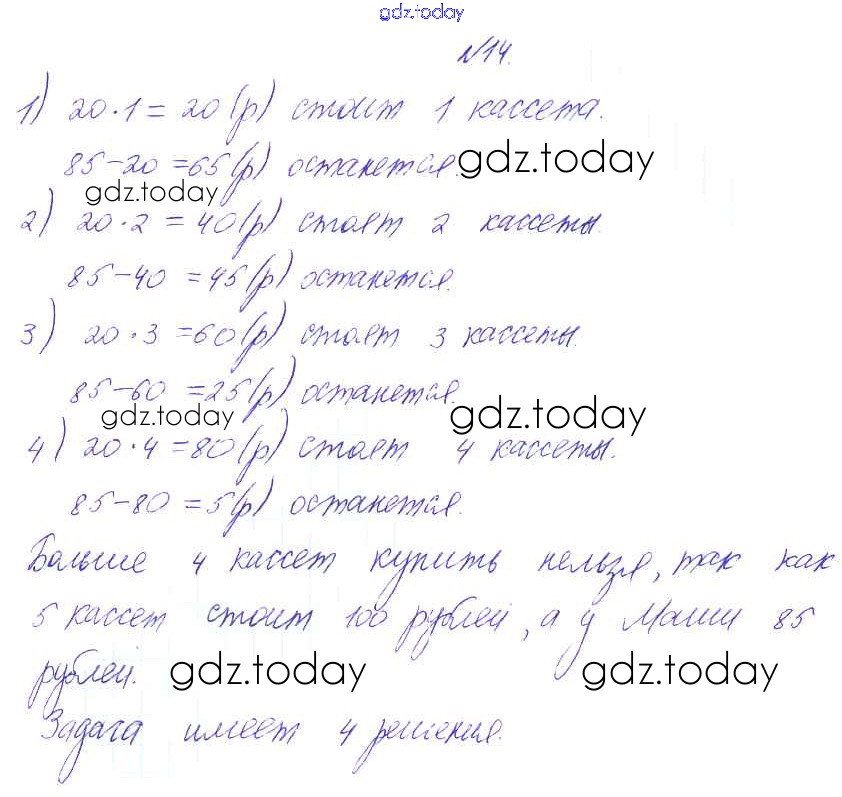 gdz.today
№14.
1) 20·1=20(р) стоит 1 кассета.
85-20=65(р) останется. gdz.today
gdz.today
2) 20·2=40(р) стоят 2 кассеты.
85-40=45(р) останется.
3) 20·3=60(р) стоят 3 кассеты.
85-60=25(р) останется.
gdz.today gdz.today
4) 20·4=80(р) стоят 4 кассеты.
85-80=5(р) останется.
Больше 4 кассет купить нельзя, так как
5 кассет стоит 100 рублей, а у Маши 85
рублей. gdz.today gdz.today
Задача имеет 4 решения.